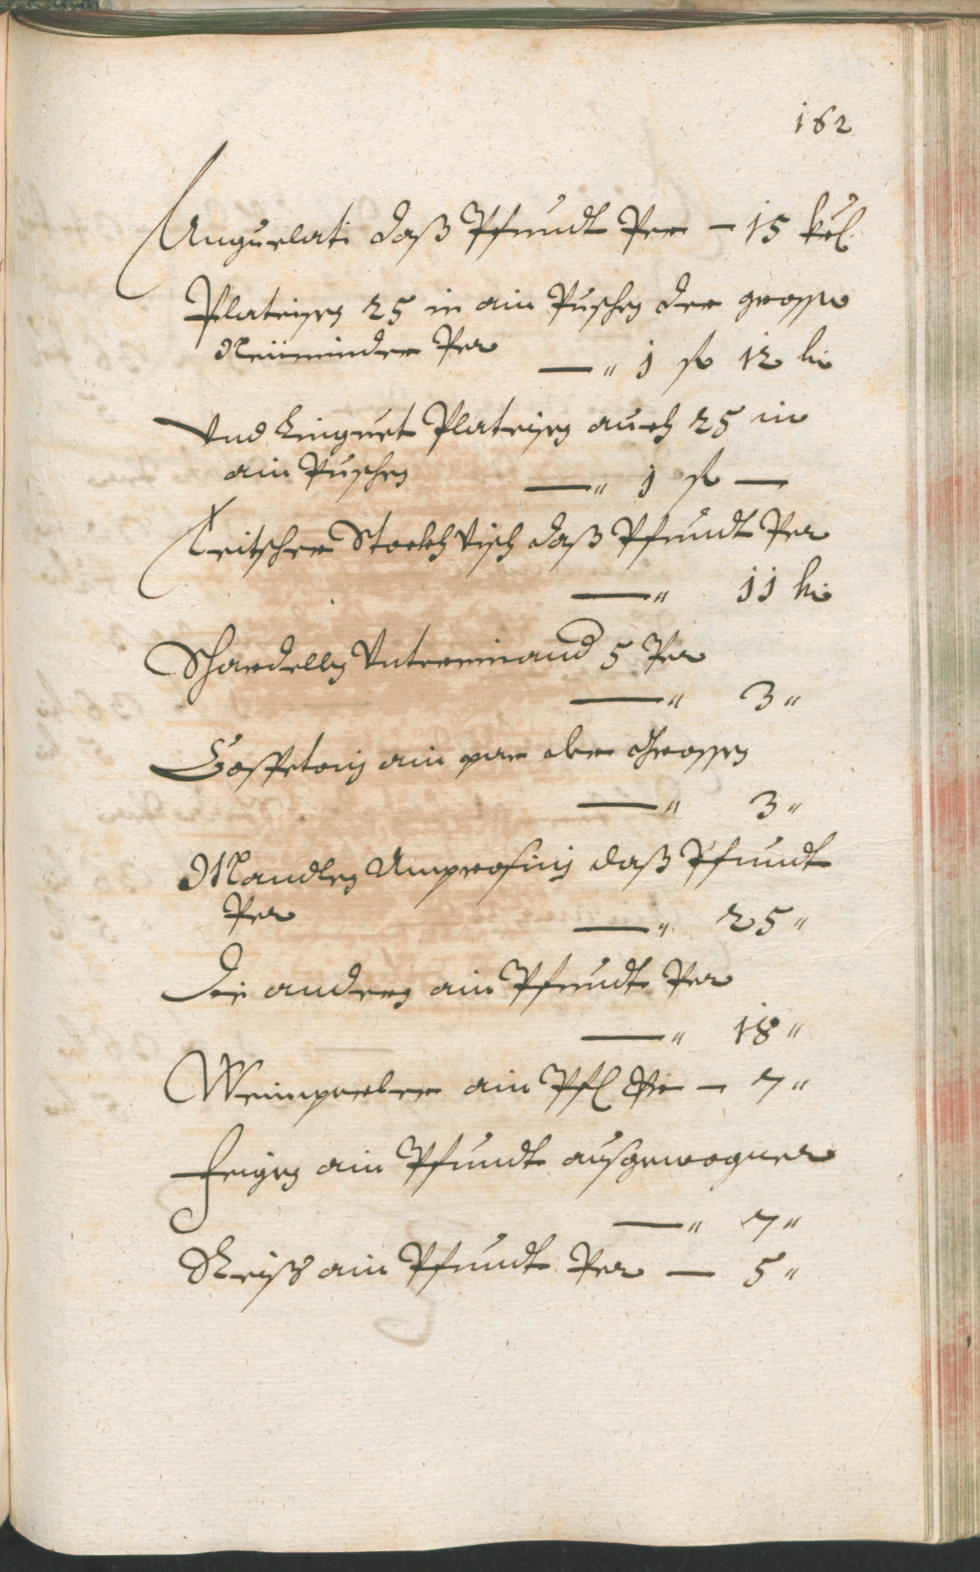 162
Anguelati daß Pfundt Per — 15 krl
Plateisen 25 in ain Puschen der grosse
Neuminder Per
—" 1 fl 12 kr
Vnd Linguet Plateisen auch 25 in
ain Puschen
—" 1 fl —
Teitscher Stockh Visch daß Pfundt Per
—" 11 kr
Schardellen Vntereinand 5 Per
—" 3"
Gospetonj ain par der Grossen
—" 3"
Mandlen Amprosinj daß Pfundt
Per
—" 25"
Die andern ain Pfundt Per
—" 18"
Weinperler ain Pfl Per — 7"
Feigen ain Pfundt außgewogner
—" 7"
Reiß ain Pfundt Per — 5"